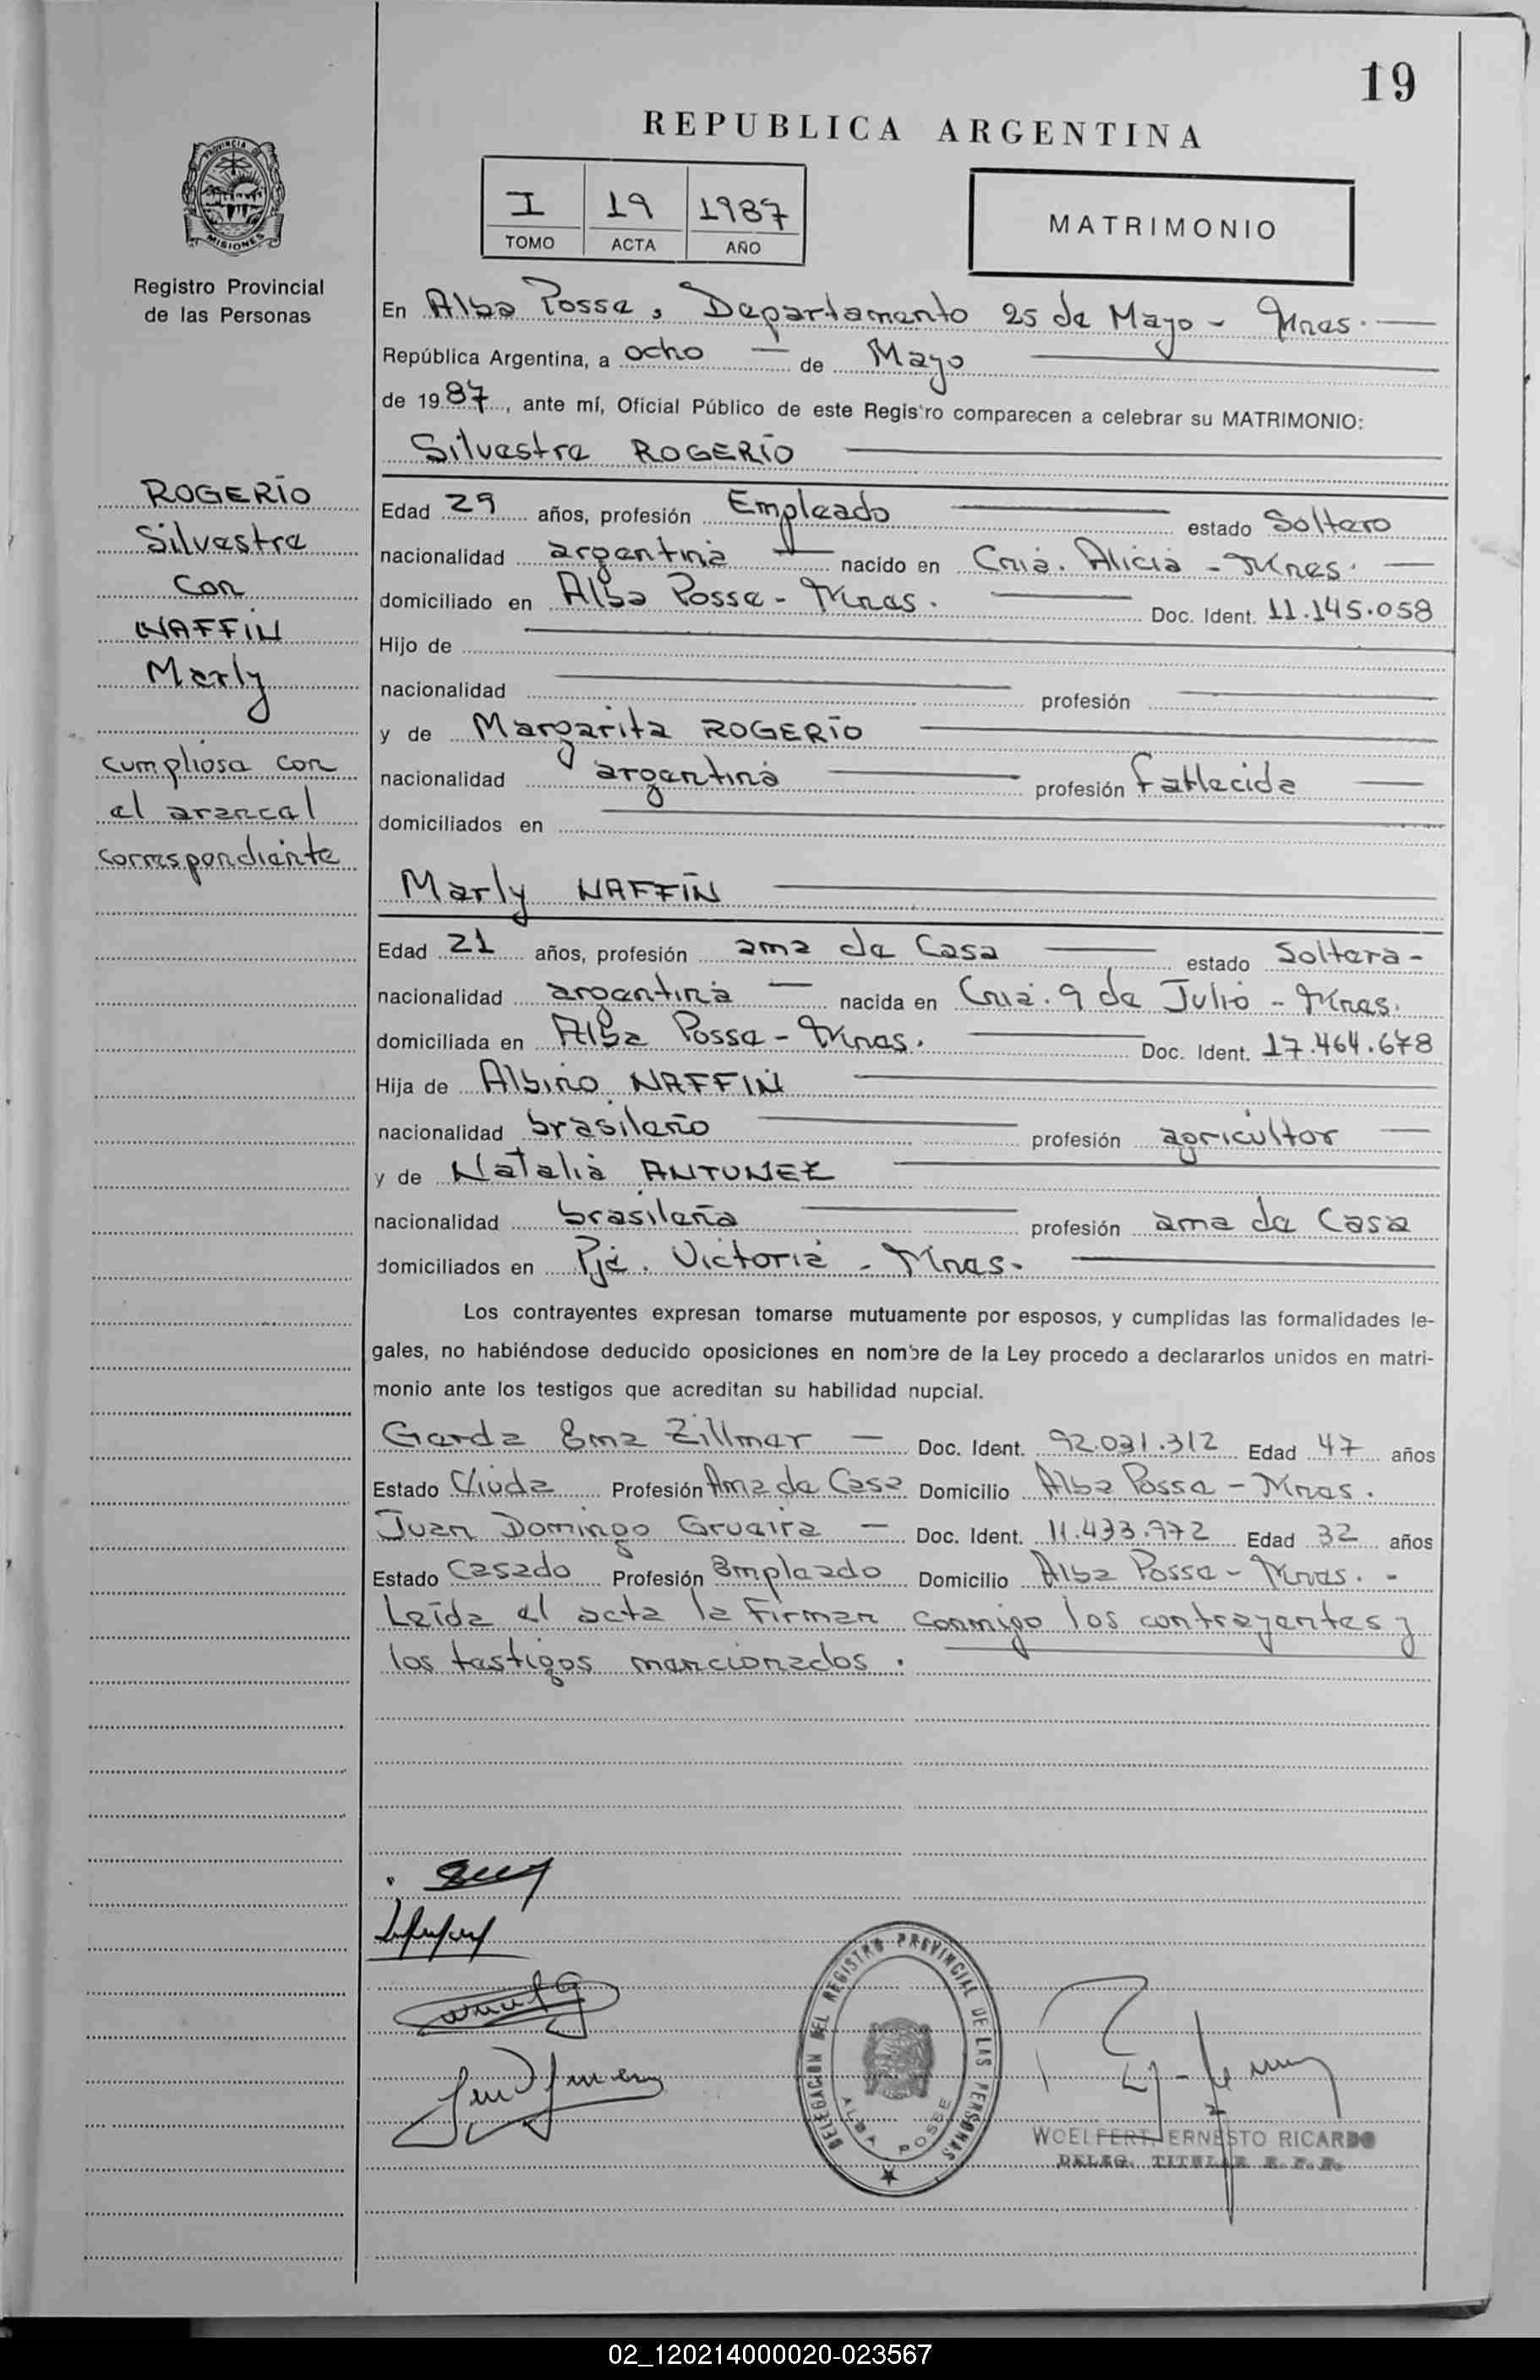 19
REPUBLICA ARGENTINA
PROVINCIA DE
MISIONES
Registro Provincial
de las Personas
I 19 1987
TOMO ACTA AÑO
MATRIMONIO
En Alba Posse, Departamento 25 de Mayo - Mnes.
República Argentina, a ocho de Mayo
de 1987, ante mí, Oficial Público de este Registro comparecen a celebrar su MATRIMONIO:
Silvestre ROGERIO
ROGERIO
Silvestre
con
NAFFIN
Marly
cumpliose con
el arancel
correspondiente
Edad 29 años, profesión Empleado estado Soltero
nacionalidad argentina nacido en Cnia. Alicia - Mnes.
domiciliado en Alba Posse - Mnes. Doc. Ident. 11.145.058
Hijo de
nacionalidad profesión
y de Margarita ROGERIO
nacionalidad argentina profesión fallecida
domiciliados en
Marly NAFFIN
Edad 21 años, profesión ama de Casa estado Soltera -
nacionalidad argentina nacida en Cnia. 9 de Julio - Mnes.
domiciliada en Alba Posse - Mnes. Doc. Ident. 17.464.678
Hija de Albino NAFFIN
nacionalidad brasileño profesión agricultor
y de Natalia ANTUNEZ
nacionalidad brasileña profesión ama de Casa
domiciliados en Pje. Victoria - Mnes.
Los contrayentes expresan tomarse mutuamente por esposos, y cumplidas las formalidades le-
gales, no habiéndose deducido oposiciones en nombre de la Ley procedo a declararlos unidos en matri-
monio ante los testigos que acreditan su habilidad nupcial.
Gerda Ema Zillmer Doc. Ident. 92.031.312 Edad 47 años
Estado Viuda Profesión Ama de Casa Domicilio Alba Posse - Mnes.
Juan Domingo Doc. Ident. 11.433.972 Edad 32 años
Estado Casado Profesión Empleado Domicilio Alba Posse - Mnes. -
Leída el acta la firman conmigo los contrayentes y
los testigos mencionados.
DELEGACION DEL REGISTRO PROVINCIAL DE LAS PERSONAS
ALBA POSSE
WOELFERT, ERNESTO RICARDO
DELEG. TITULAR R. P. P.
02_120214000020-023567